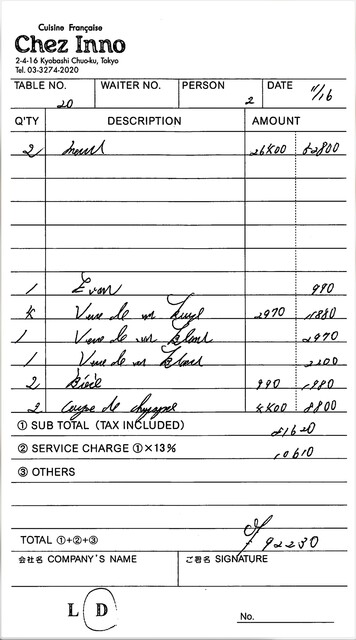 Cuisine Française
Chez Inno
2-4-16 Kyobashi Chuo-ku, Tokyo
Tel. 03-3274-2020
TABLE NO. 20 WAITER NO. PERSON 2 DATE 11/16
Q'TY DESCRIPTION AMOUNT
2 26400 52800
1 Evian 990
Verre de vin 2970
1 Verre de vin Blanc 2970
1 Verre de vin Blanc 2200
2 Bière 990 1980
2 Coupe de champagne 4400 8800
① SUB TOTAL (TAX INCLUDED) 81620
② SERVICE CHARGE ①×13% 10610
③ OTHERS
TOTAL ①+②+③ 92230
会社名 COMPANY'S NAME ご署名 SIGNATURE
L D
No.